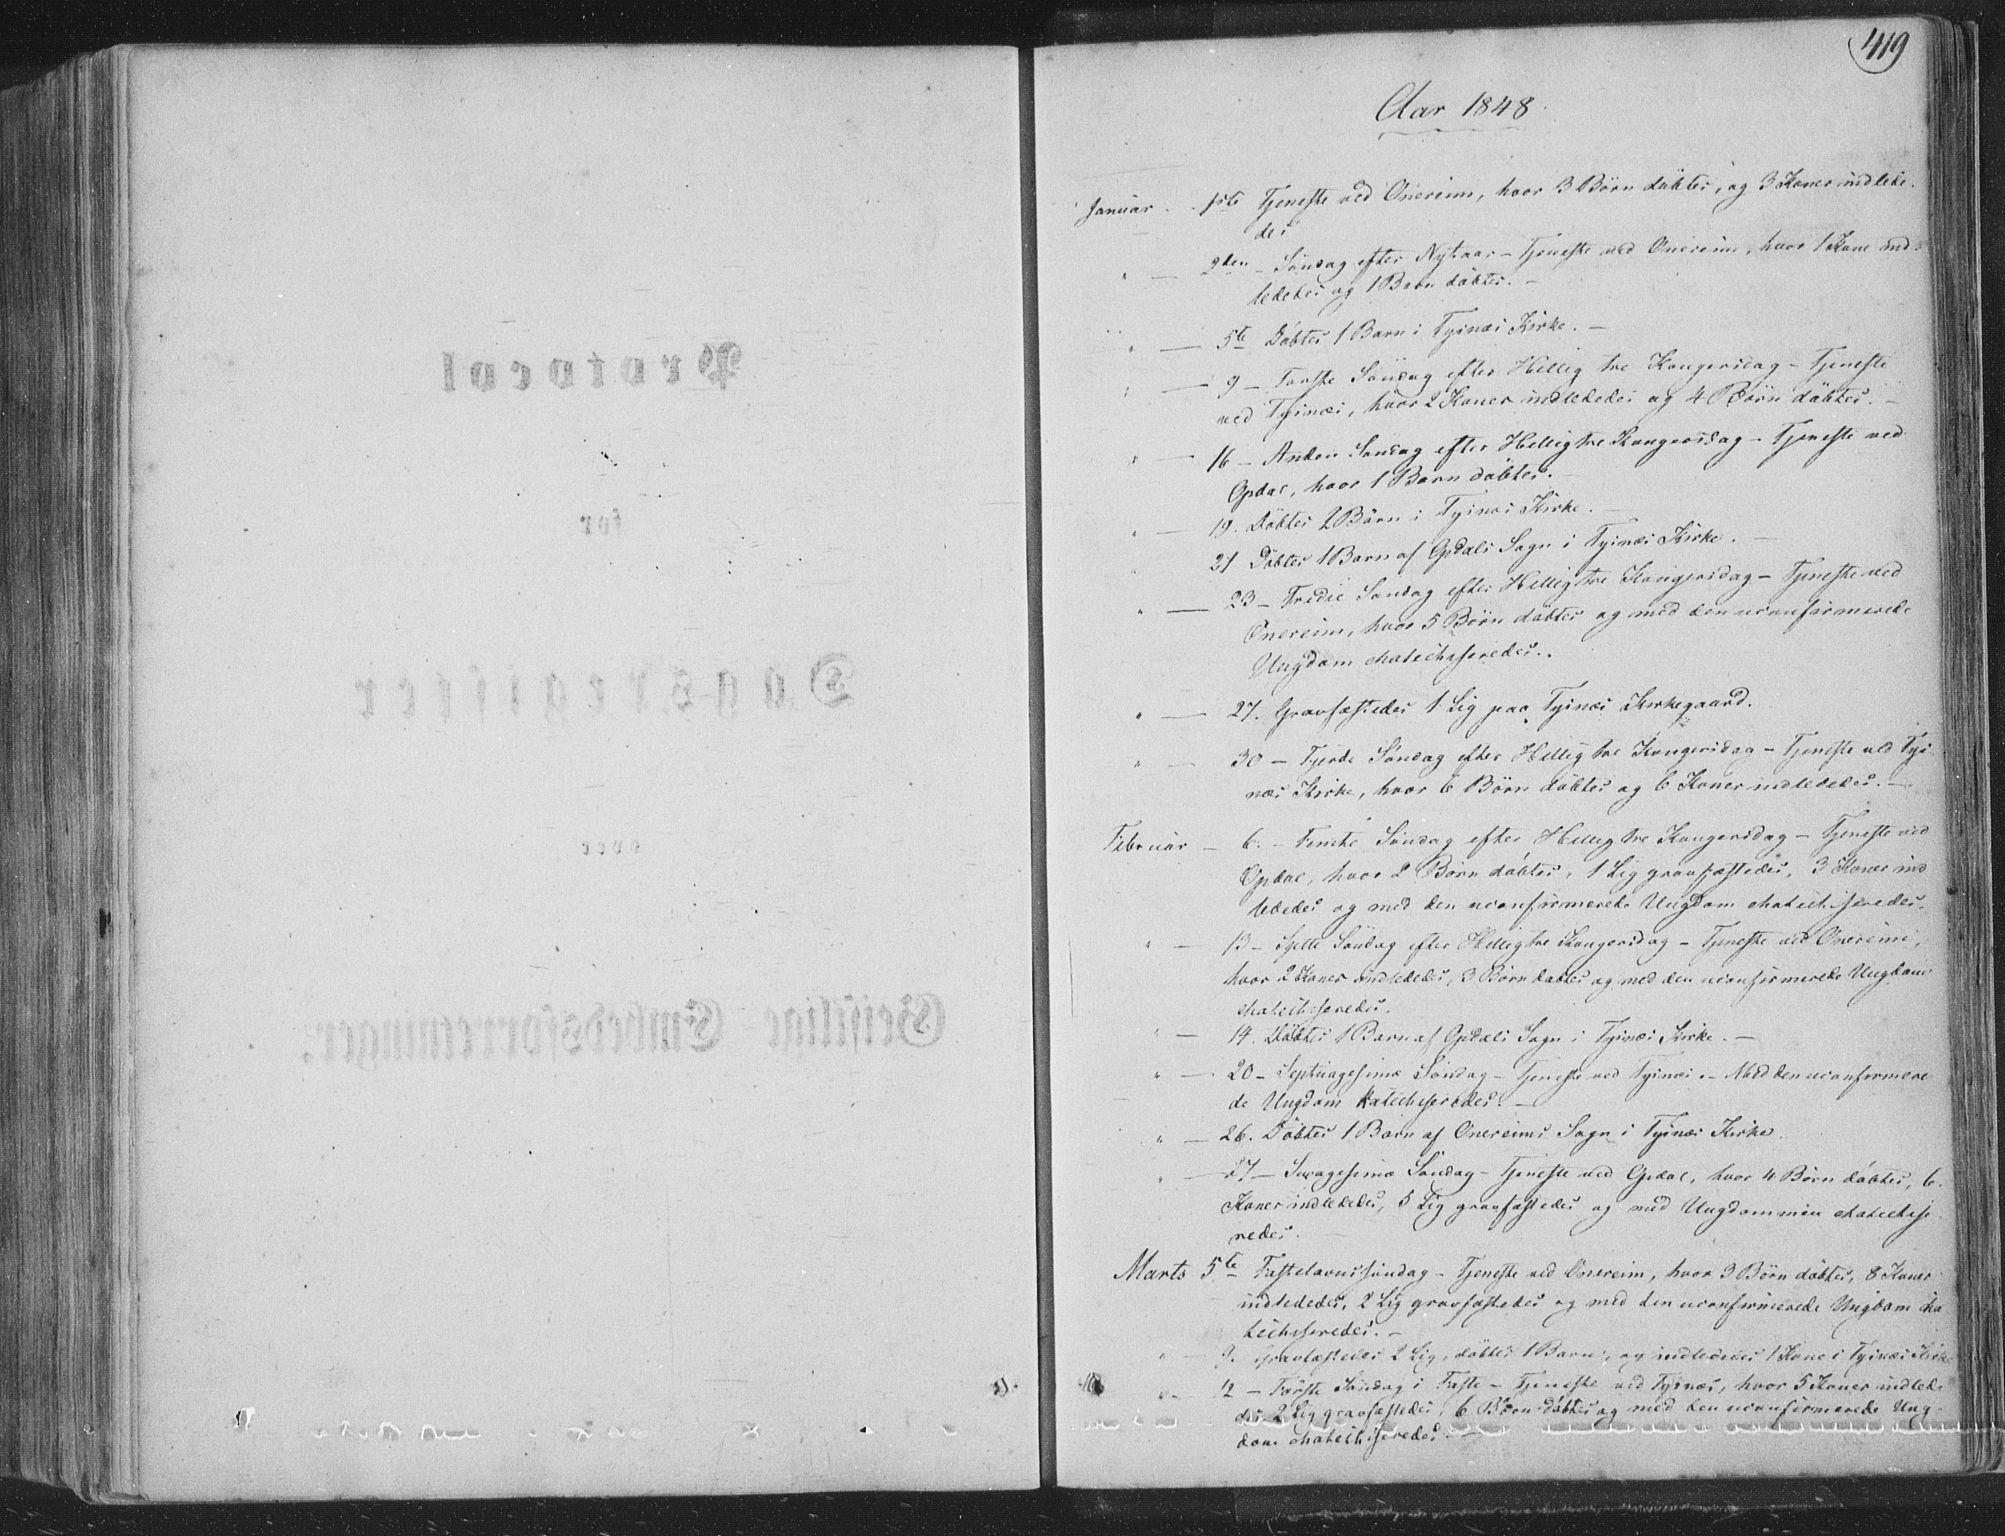 Protocol
for
Dagsregister
over
Geistlige Embedsforretninger.
419
Aar 1848.
Januar - 1ste Tjeneste ved Onereim, hvor 3 Börn döbtes, og 3 Koner indlede-
des
" — 2den - Söndag efter Nytaar - Tjeneste ved Onereim, hvor 1 Kone ind-
lededes og 1 Barn döbtes. -
" — 5te Döbtes 1 Barn i Tysnæs Kirke. -
" — 9 - Förste Söndag efter Hellig tre Kongersdag - Tjeneste
ved Tysnæs, hvor 2 Koner indlededes og 4 Börn döbtes. -
" — 16 - Anden Söndag efter Hellig tre Kongersdag - Tjeneste ved
Opdal, hvor 1 Barn döbtes. -
" — 19. Döbtes 2 Börn i Tysnæs Kirke. -
" 21 Döbtes 1 Barn af Opdals Sogn i Tysnæs Kirke. -
" — 23 - Tredie Söndag efter Hellig tre Kongersdag - Tjeneste ved
Onereim, hvor 5 Börn döbtes og med den uconfirmerede
Ungdom chatechiseredes..
" — 27. Gravfæstedes 1 Lig paa Tysnæs Kirkegaard.
" — 30 - Fjerde Söndag efter Hellig tre Kongersdag - Tjeneste ved Tys-
næs Kirke, hvor 6 Börn döbtes og 6 Koner indlededes. -
Februar - 6. - Femte Söndag efter Hellig tre Kongersdag - Tjeneste ved
Opdal, hvor 2 Börn döbtes, 1 Lig gravfæstedes, 3 Koner ind
lededes og med den uconfirmerede Ungdom chatechiseredes.
" — 13 - Sjette Söndag efter Hellig tre Kongersdag - Tjeneste ved Onereim,
hvor 2 Koner indlededes, 3 Börn döbtes og med den uconfirmerede Ungdom
chatechiseredes.
" — 14. Döbtes 1 Barn af Opdals Sogn i Tysnæs Kirke. -
" — 20 - Septuagesimæ Söndag - Tjeneste ved Tysnæs. - Med den uconfirmere
de Ungdom katechiseredes. -
" — 26. Döbtes 1 Barn af Onereims Sogn i Tysnæs Kirke.
" — 27 - Sexagesimæ Söndag - Tjeneste ved Opdal, hvor 4 Börn döbtes, 6.
Koner indlededes, 5 Lig gravfæstedes og med Ungdommen chatechise
redes. -
Marts 5te Fastelavnssöndag - Tjeneste ved Onereim, hvor 3 Börn döbtes, 8 Koner
indlededes, 2 Lig gravfæstedes og med den uconfirmerede Ungdom cha
techiseredes. -
" — 9. Gravfæstedes 2 Lig, döbtes 1 Barn, og indlededes 1 Kone i Tysnæs Kirke
" — 12 - Förste Söndag i Faste - Tjeneste ved Tysnæs, hvor 5 Koner indlede-
des 2 Lig gravfæstedes, 6 Börn döbtes og med den uconfirmerede Ung-
dom chatechiseredes. -